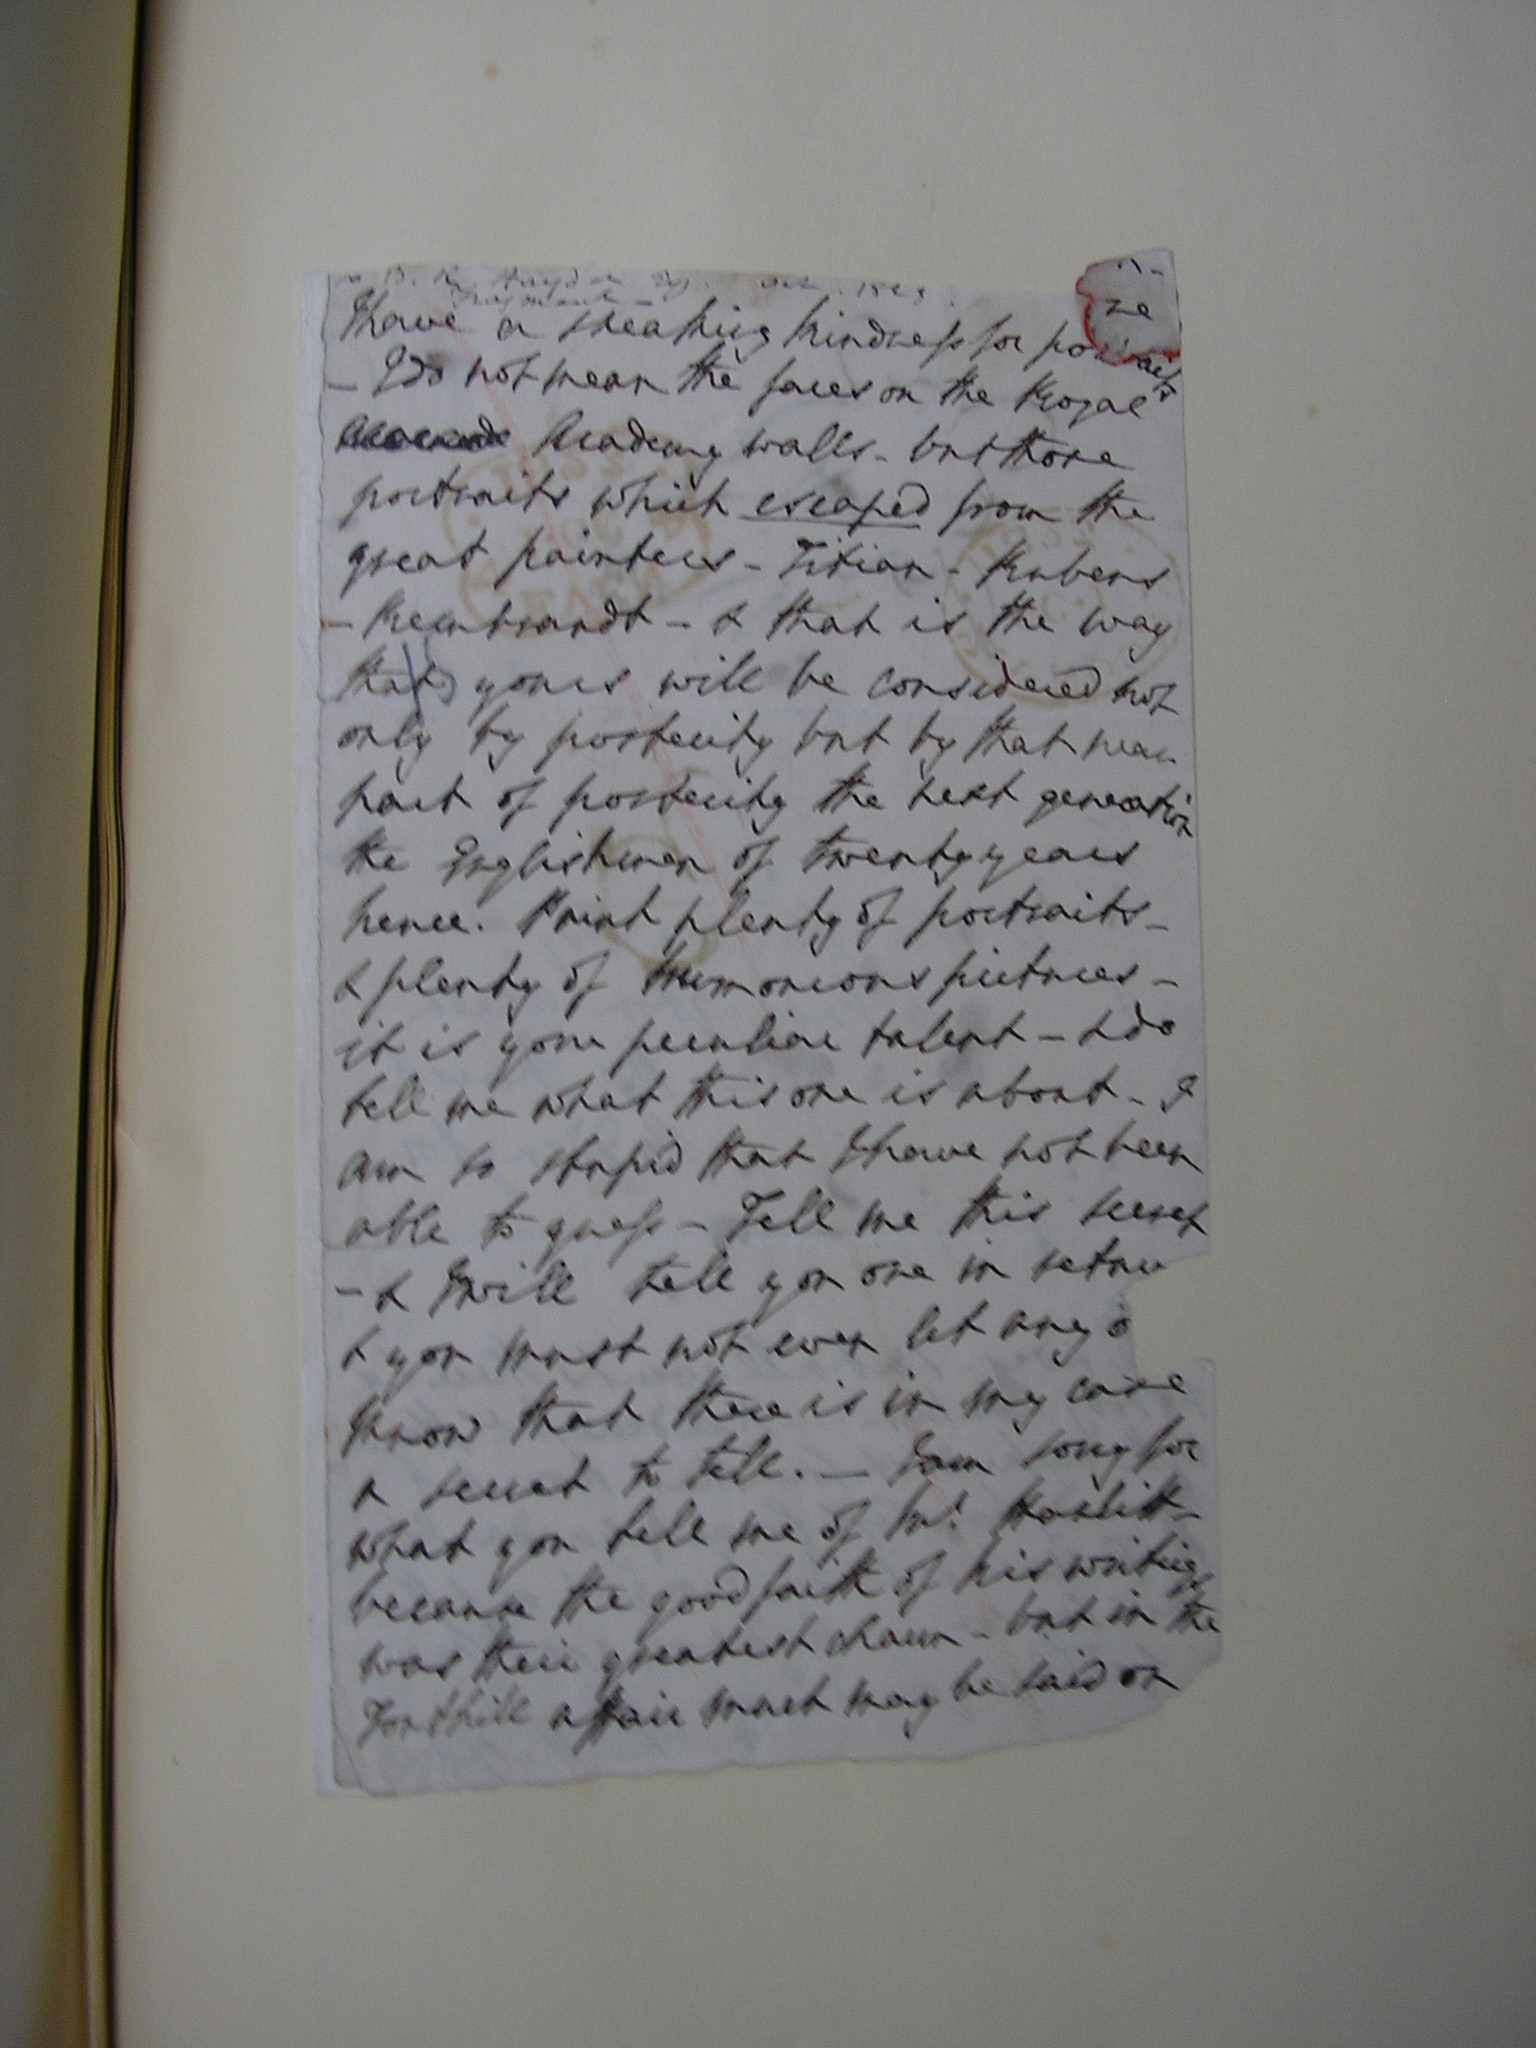 B. R. Haydon Esq. Oct. 1823.
Fragment -
ze
I have a sneaking kindness for portraits
- I do not mean the faces on the Royal
Academy walls - but those
portraits which escaped from the
great painters - Titian - Rubens
- Rembrandt - & that is the way
that yours will be considered not
only by posterity but by that near
part of posterity the next generation
the Englishmen of twenty years
hence. Paint plenty of portraits -
& plenty of humorous pictures -
it is your peculiar talent - & do
tell me what this one is about - I
am so stupid that I have not been
able to guess - Tell me this secret
- & I will tell you one in retur
& you must not even let any o
know that there is in my case
a secret to tell. - I am sorry for
what you tell me of Mr. Hazlitt -
because the good faith of his writings
was their greatest charm - but in the
Fonthill affair much may be said on